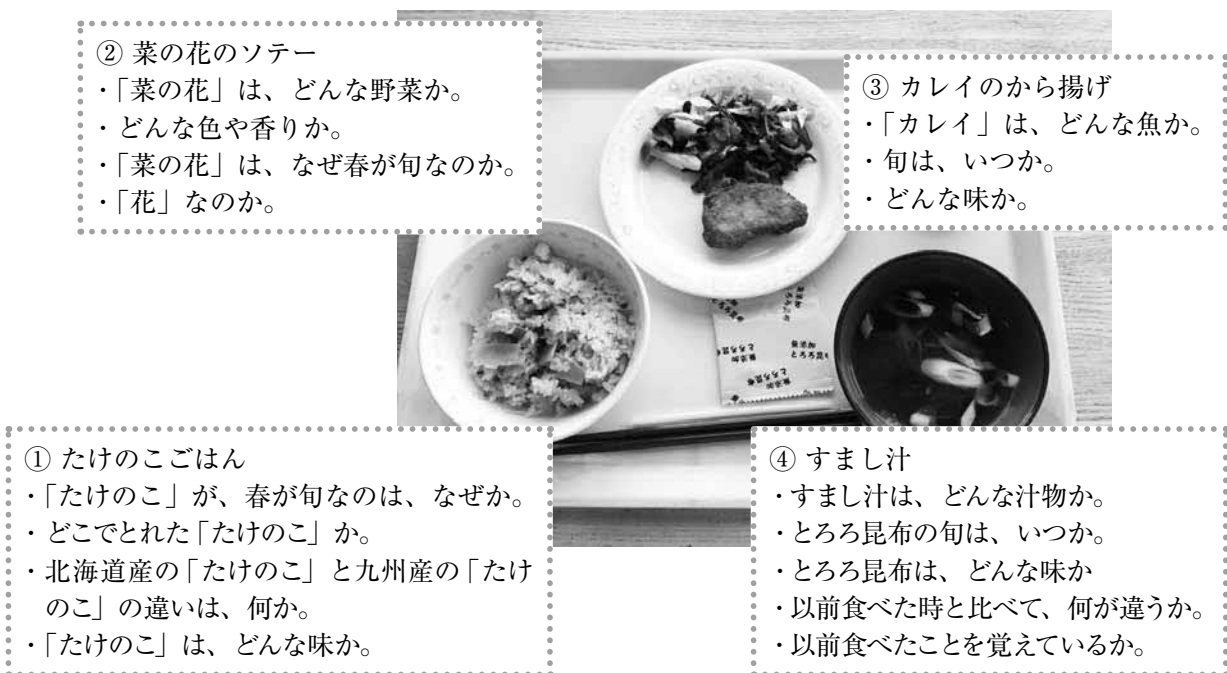 ② 菜の花のソテー
・「菜の花」は、どんな野菜か。
・どんな色や香りか。
・「菜の花」は、なぜ春が旬なのか。
・「花」なのか。
③ カレイのから揚げ
・「カレイ」は、どんな魚か。
・旬は、いつか。
・どんな味か。
とろろ昆布
無添加
とろろ昆布
無添加
とろろ昆布
① たけのこごはん
・「たけのこ」が、春が旬なのは、なぜか。
・どこでとれた「たけのこ」か。
・北海道産の「たけのこ」と九州産の「たけ
のこ」の違いは、何か。
・「たけのこ」は、どんな味か。
④ すまし汁
・すまし汁は、どんな汁物か。
・とろろ昆布の旬は、いつか。
・とろろ昆布は、どんな味か
・以前食べた時と比べて、何が違うか。
・以前食べたことを覚えているか。